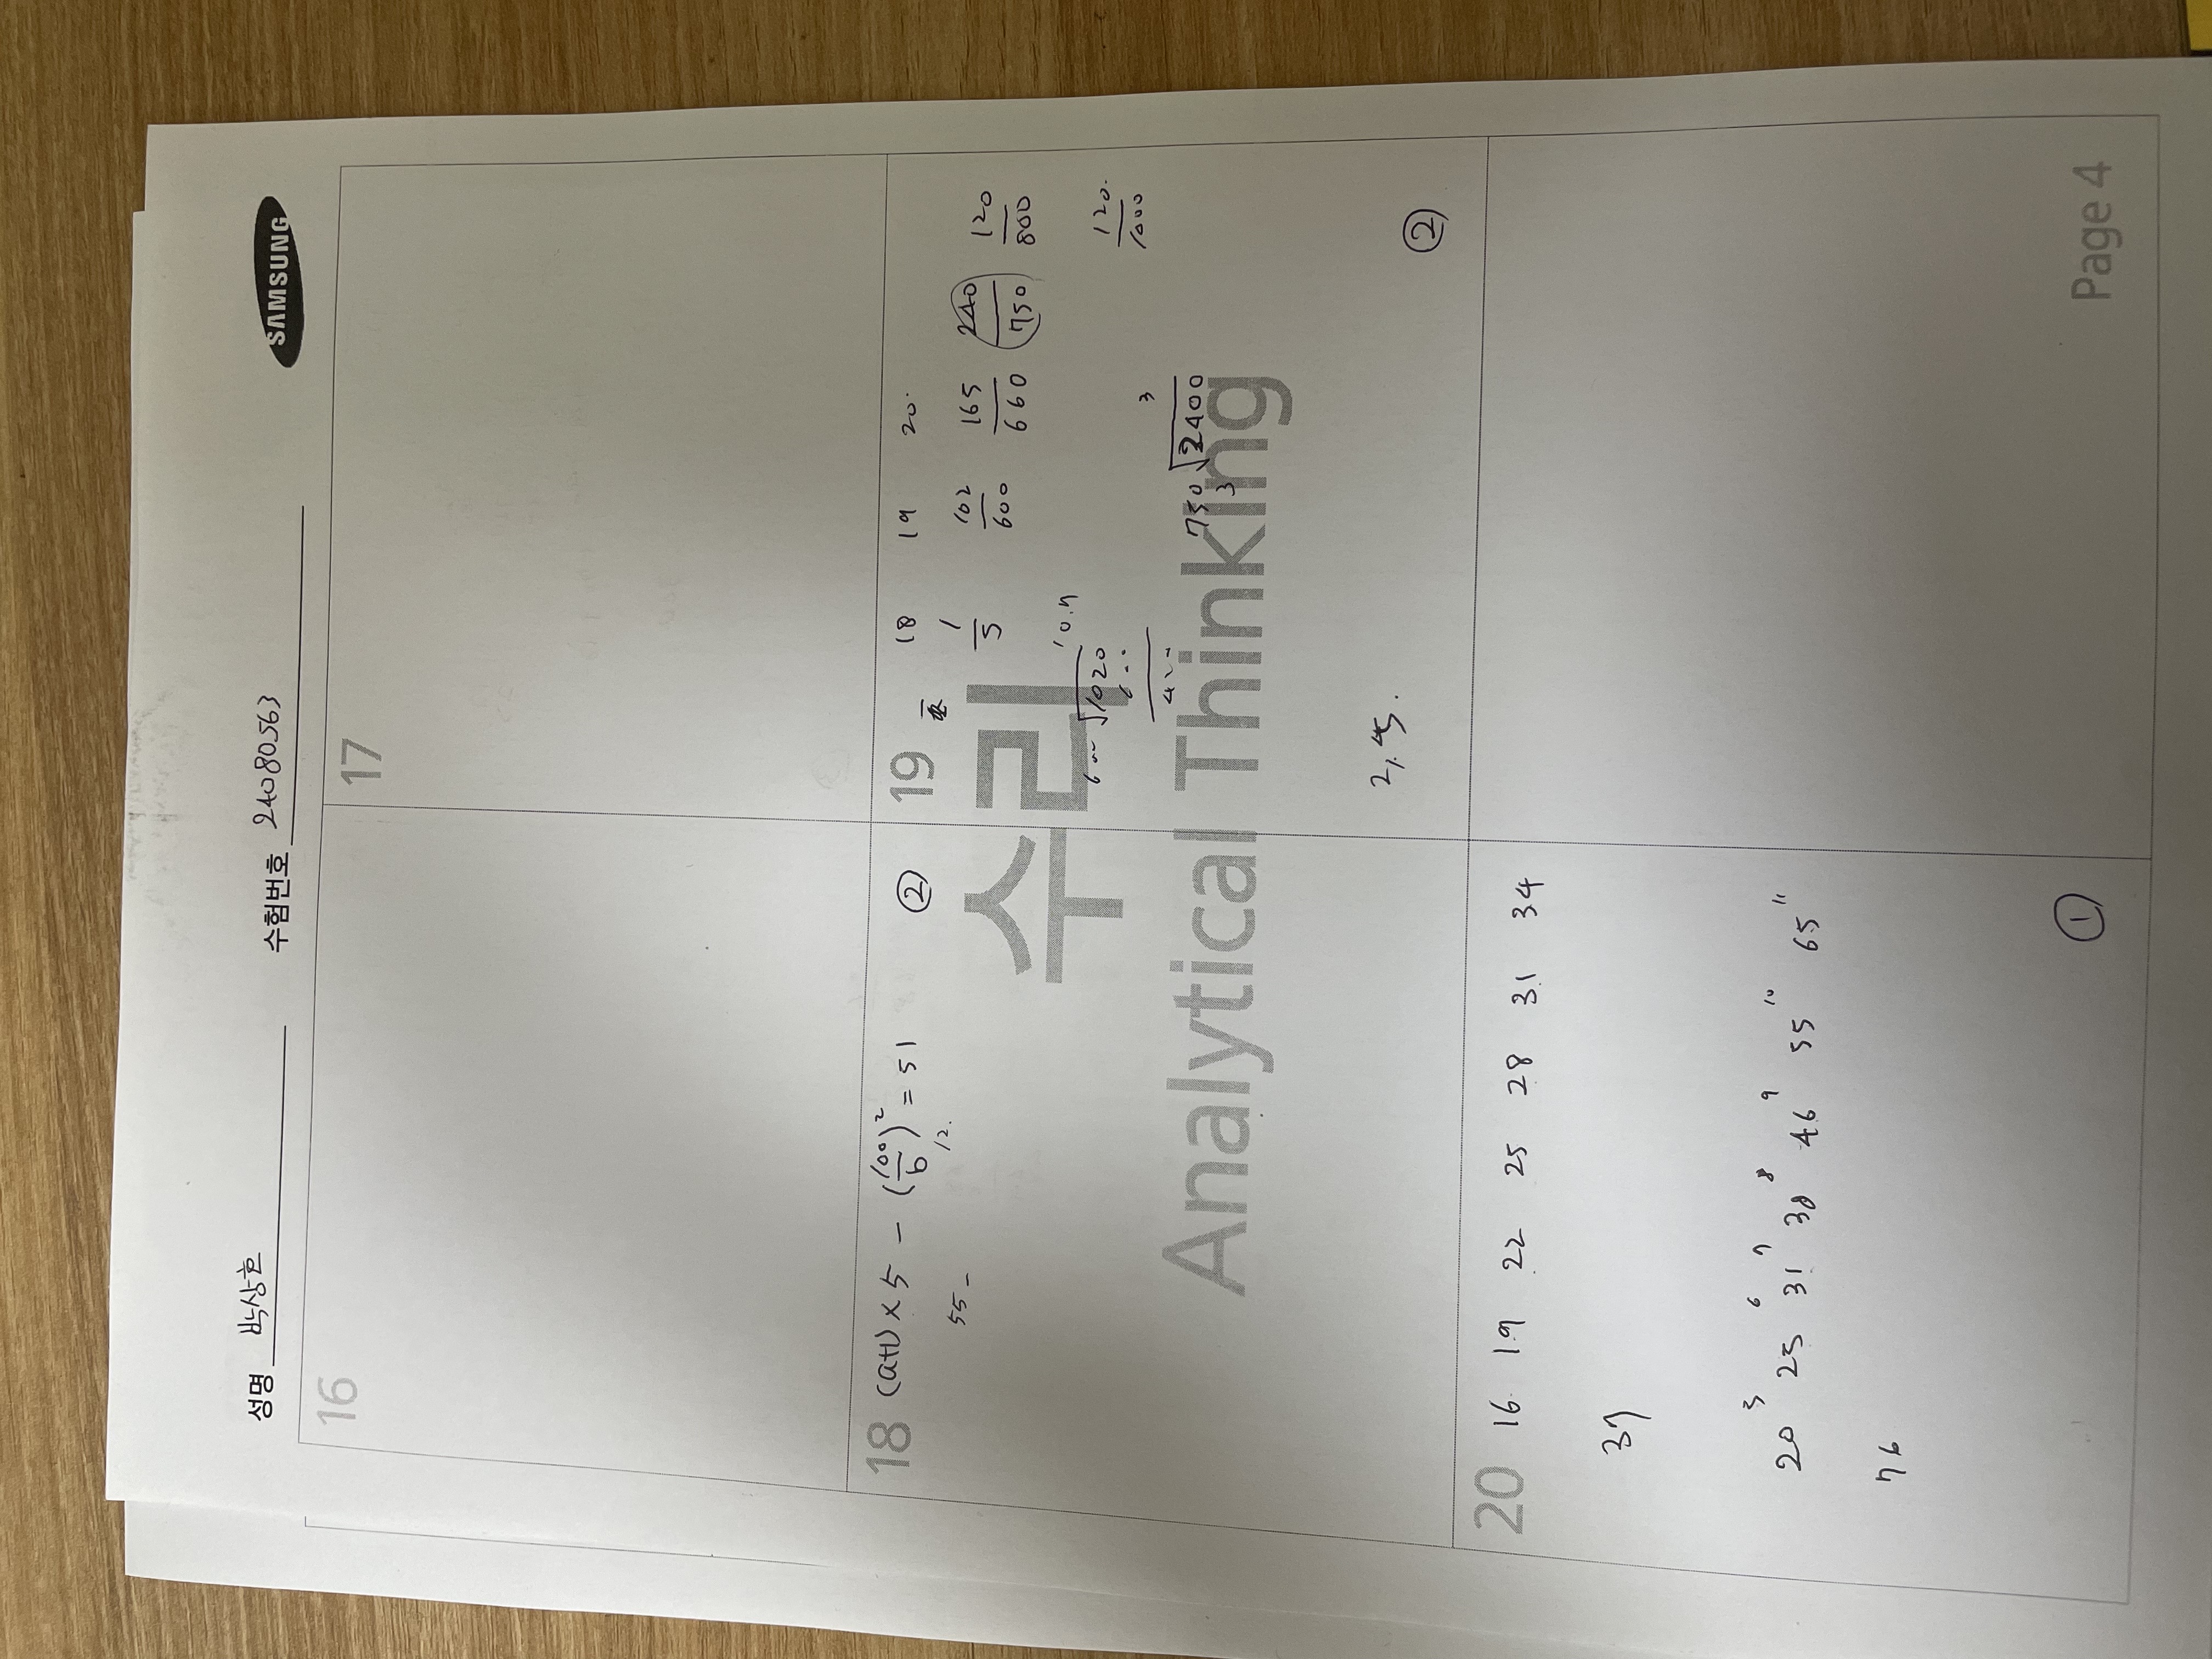 성명 박상호
수험번호 24080563
SAMSUNG
16
17
18 (a+1) × 5 - (100/b)² = 51 ②
12.
55 -
19 18 19 20.
1/5 102/600 165/660 240/750 120/800
10.7
1020
120.
1000
3
750 √2400
3
2,45.
②
수리
Analytical Thinking
20 16 19 22 25 28 31 34
37
5 6 7 8 9 10 11
20 25 31 38 46 55 65
76
①
Page 4